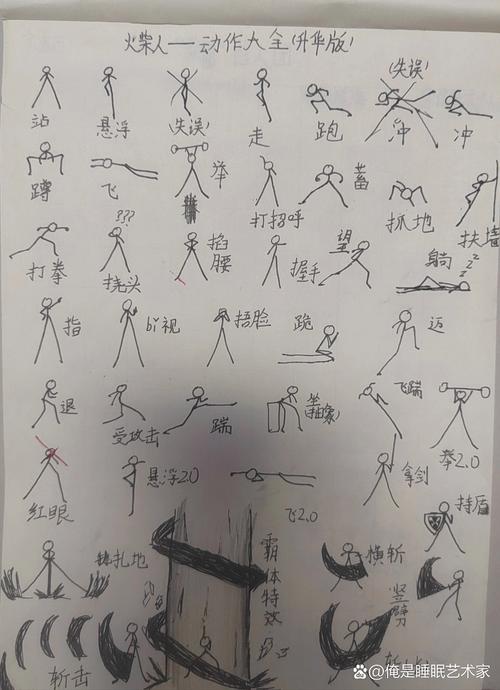 火柴人——动作大全(升华版)
站 悬浮 (失误) 走 跑 (失误) 冲 冲
蹲 飞 举 打招呼 蓄 抓地 扶墙
打拳 ??? 挠头 掐腰 握手 望 躺 zzz
指 bi视 捂脸 跪 迈
退 受攻击 踹 坐(抽象) 飞踹 举2.0
红眼 悬浮2.0 飞2.0 拿剑 持盾
扎地 霸体特效 横斩 竖劈
斩击
@俺是睡眠艺术家